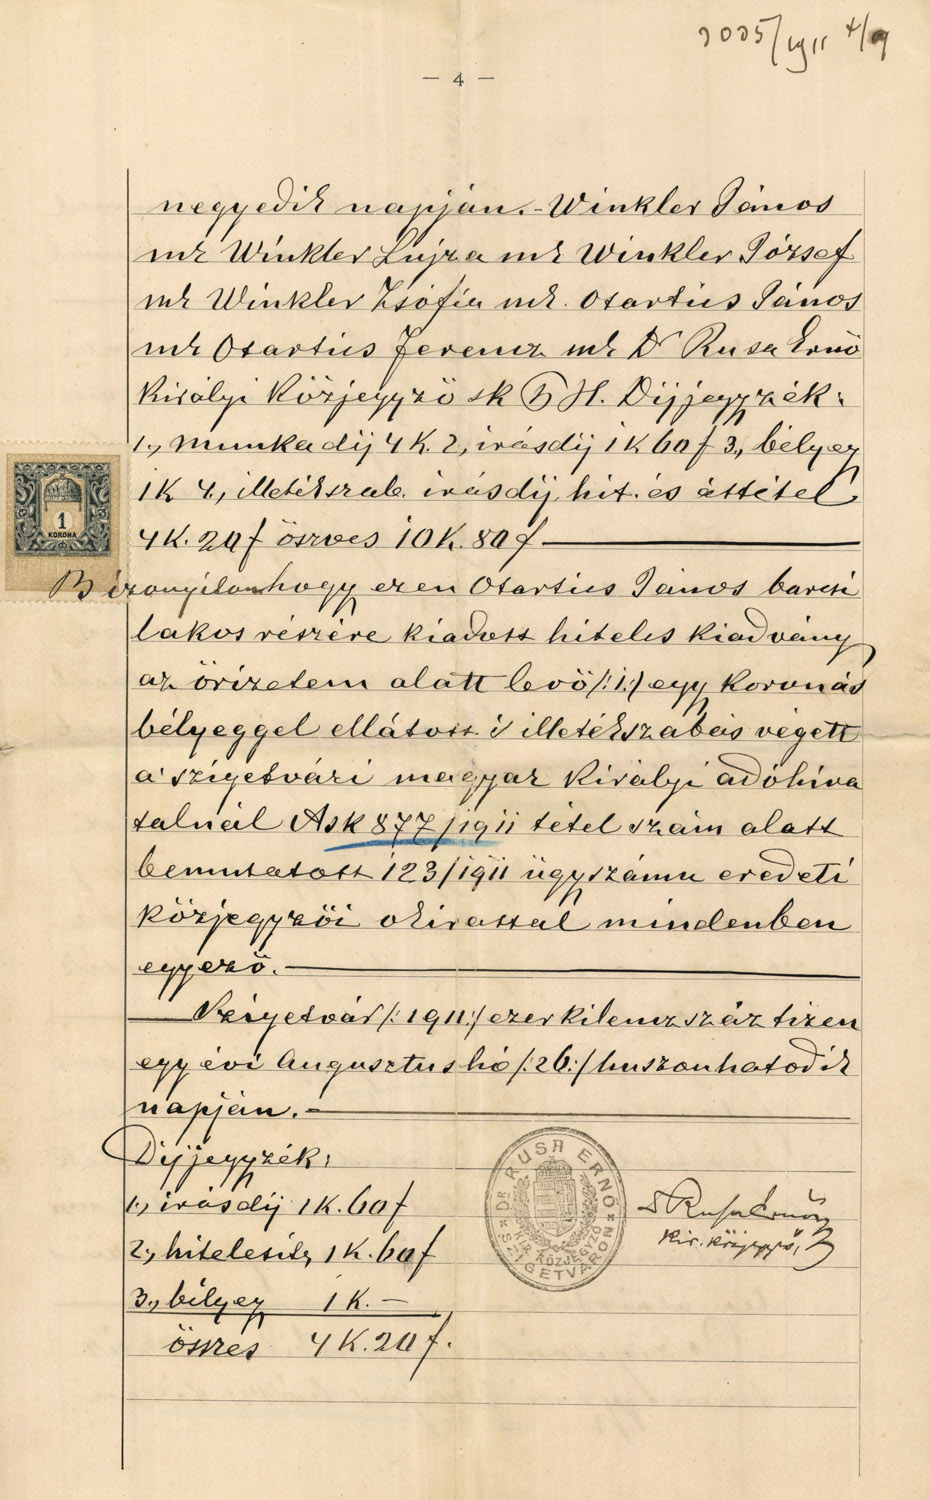 2025/1911 4/9
— 4 —
negyedik napján. - Winkler János
mk Winkler Lujza mk Winkler József
mk Winkler Zsófia mk. Otartics János
mk Otartics Ferencz mk Dr Rusa Ernő
királyi közjegyző sk P. H. Díjjegyzék:
1., munkadíj 4 K. 2, irásdíj 1 K 60 f 3., bélyeg
1 K 4., illetékszab. irásdíj, hit. és áttétel
4 K. 20 f öszves 10 K. 80 f
1
KORONA
Bizonyítom hogy ezen Otartics János barcsi
lakos részére kiadott hiteles kiadvány
az őrizetem alatt levő /:1:/ egy koronás
bélyeggel ellátott s illetékszabás végett
a szigetvári magyar királyi adóhiva
talnál Ask 877/1911 tétel szám alatt
bemutatott 123/1911 ügyszámu eredeti
közjegyzői okirattal mindenben
egyező.
Szigetvár /:1911:/ ezerkilenczszáz tizen
egy évi Augusztus hó /:26:/ huszonhatodik
napján. -
Díjjegyzék:
1., irásdíj 1 K. 60 f
2., hitelesít, 1 K. 60 f
3., bélyeg 1 K. —
össes 4 K. 20 f.
DR RUSA ERNŐ
KIR. KÖZJEGYZŐ
SZIGETVÁRON
Dr Rusa Ernő
kir. közjegyző